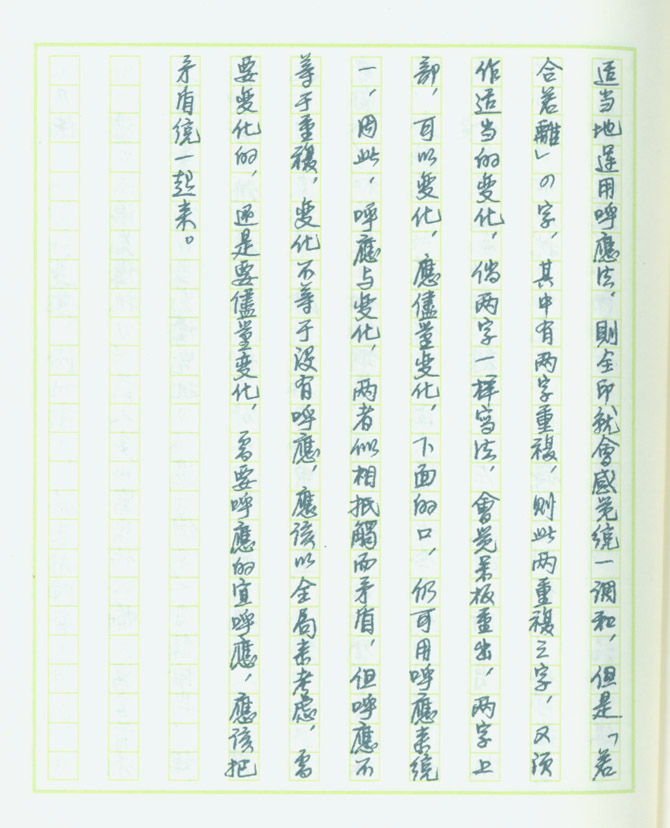 适当地运用呼應法，則全印就會感觉统一调和，但是「若
合若離」の字，其中有两字重複，則此两重複之字，又须
作适当的变化，倘两字一样写法，會觉呆板重出，两字上
部，可以变化，應儘量变化，下面的口，仍可用呼應来统
一，因此，呼應与变化，两者似相抵觸而矛盾，但呼應不
等于重複，变化不等于没有呼應，應该以全局来考虑，需
要变化的，还是要儘量变化，需要呼應的宜呼應，應该把
矛盾统一起来。